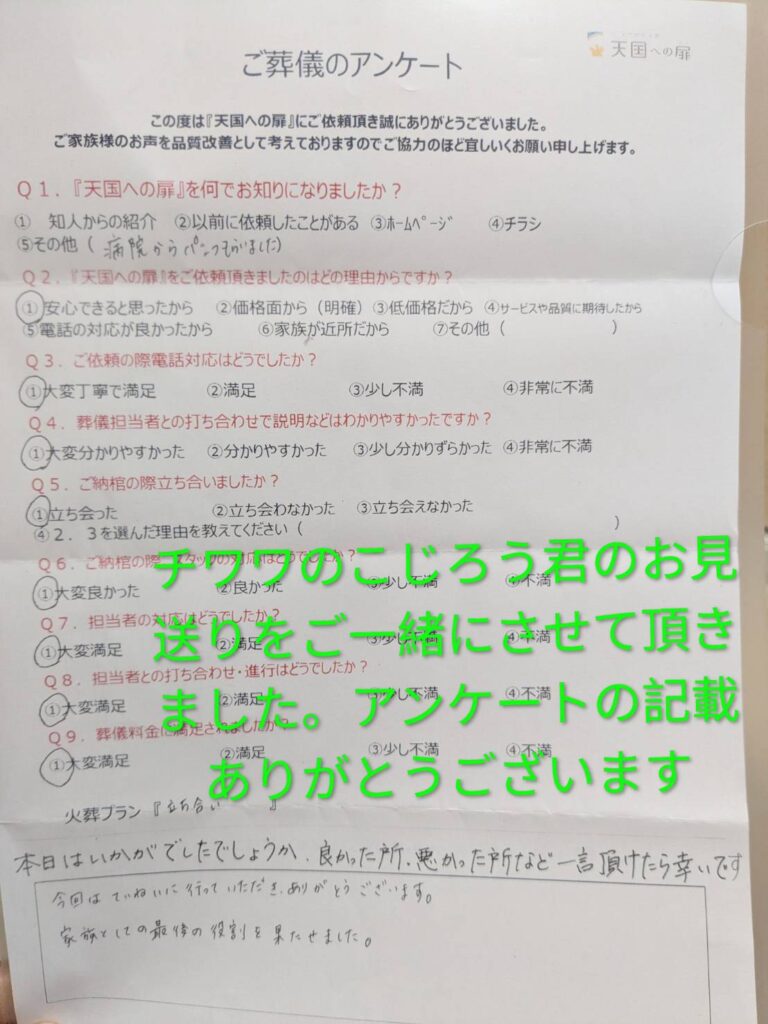 天国への扉
ご葬儀のアンケート
この度は『天国への扉』にご依頼頂き誠にありがとうございました。
ご家族様のお声を品質改善として考えておりますのでご協力のほど宜しいくお願い申し上げます。
Q1．『天国への扉』を何でお知りになりましたか？
① 知人からの紹介 ②以前に依頼したことがある ③ﾎｰﾑﾍﾟｰｼﾞ ④チラシ
⑤その他（ 病院からパンフもらいました）
Q2．『天国への扉』をご依頼頂きましたのはどの理由からですか？
①安心できると思ったから ②価格面から（明確） ③低価格だから ④サービスや品質に期待したから
⑤電話の対応が良かったから ⑥家族が近所だから ⑦その他（ ）
Q3．ご依頼の際電話対応はどうでしたか？
①大変丁寧で満足 ②満足 ③少し不満 ④非常に不満
Q4．葬儀担当者との打ち合わせで説明などはわかりやすかったですか？
①大変分かりやすかった ②分かりやすかった ③少し分かりずらかった ④非常に不満
Q5．ご納棺の際立ち合いましたか？
①立ち会った ②立ち会わなかった ③立ち会えなかった
④２．３を選んだ理由を教えてください（ ）
Q6．ご納棺の際スタッフの対応はどうでしたか？
①大変良かった ②良かった ③少し不満 ④不満
Q7．担当者の対応はどうでしたか？
①大変満足 ②満足 ③少し不満 ④不満
Q8．担当者との打ち合わせ・進行はどうでしたか？
①大変満足 ②満足 ③少し不満 ④不満
Q9．葬儀料金に満足されましたか？
①大変満足 ②満足 ③少し不満 ④不満
チワワのこじろう君のお見
送りをご一緒にさせて頂き
ました。アンケートの記載
ありがとうございます
火葬プラン『立ち合い 』
本日はいかがでしたでしょうか、良かった所、悪かった所など一言頂けたら幸いです
今回はていねいに行っていただき、ありがとうございます。
家族としての最後の役割を果たせました。